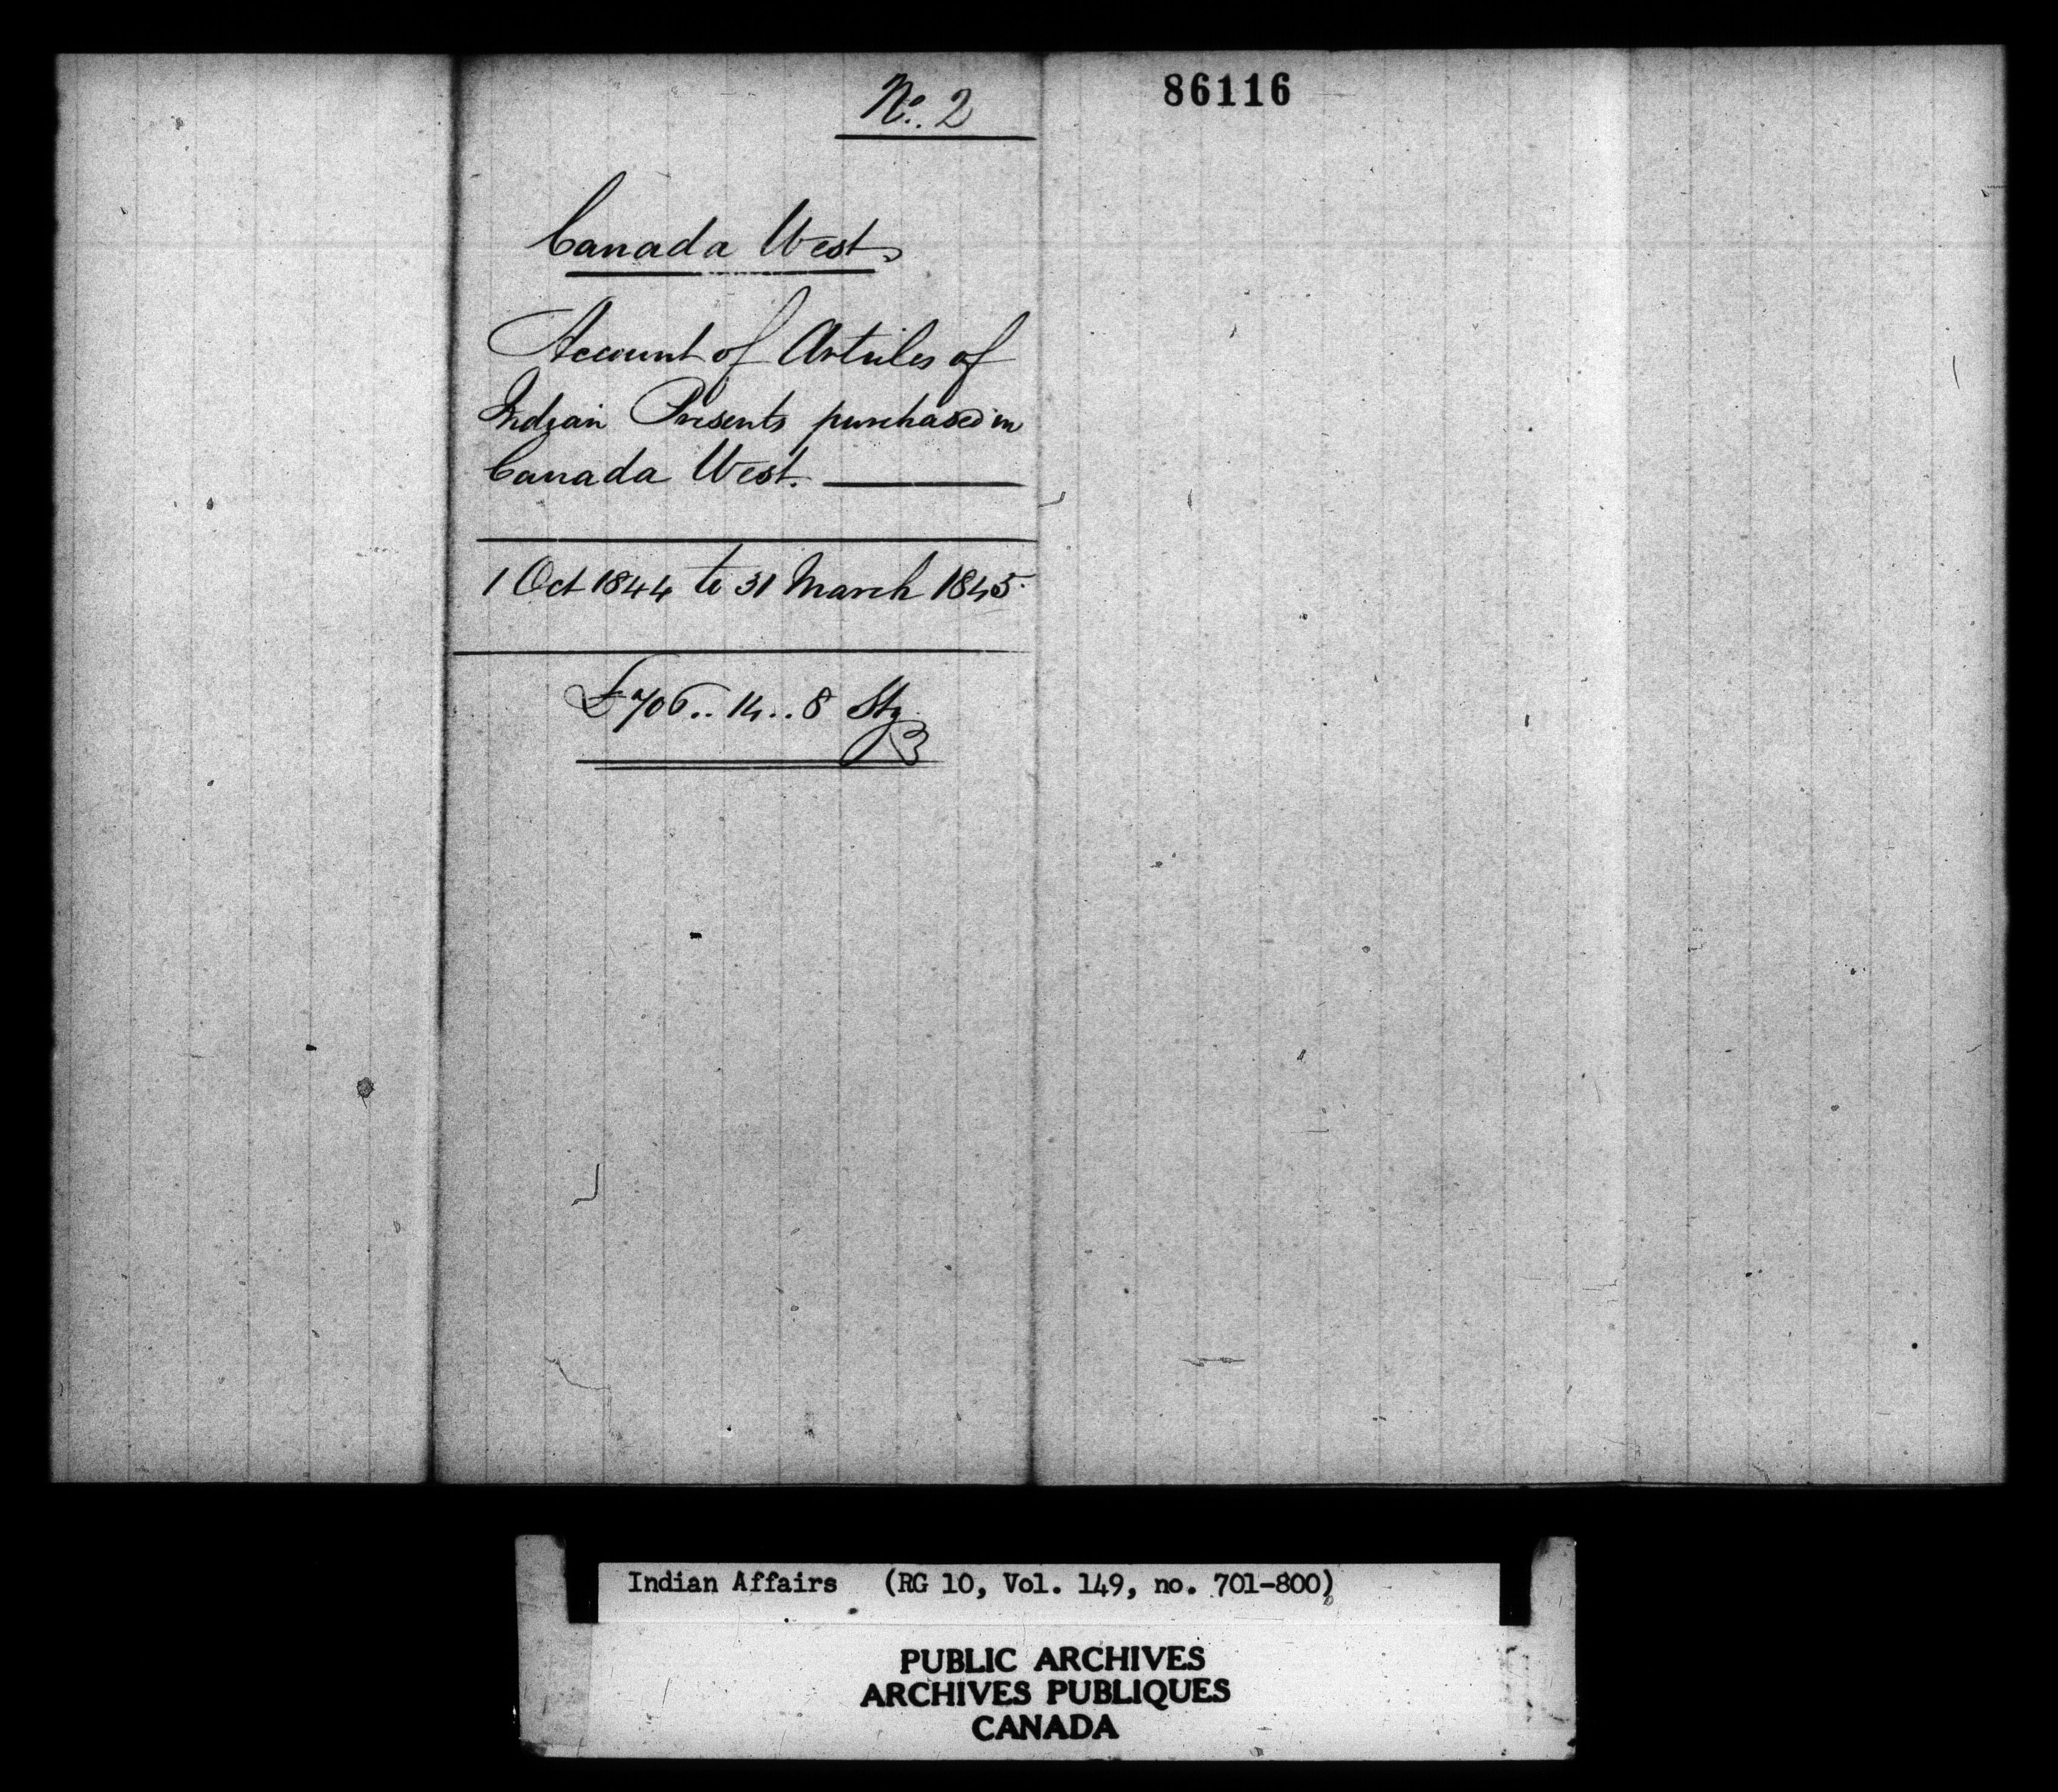 No. 2
86116
Canada West.
Account of Articles of
Indian Presents purchased in
Canada West.
1 Oct 1844 to 31 March 1845.
£706..14..8 Stg
Indian Affairs (RG 10, Vol. 149, no. 701-800)
PUBLIC ARCHIVES
ARCHIVES PUBLIQUES
CANADA